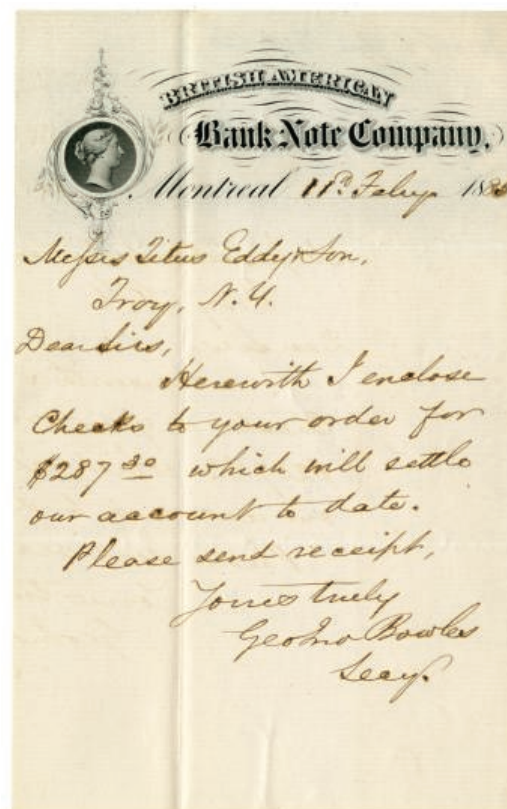 BRITISH AMERICAN
Bank Note Company,
Montreal 11th Feby 188
Messrs Titus Eddy & Son,
Troy, N.Y.
Dear Sirs,
Herewith I enclose
Checks to your order for
$287 30 which will settle
our account to date.
Please send receipt,
Yours truly
Geo Jno Bowles
Secy.